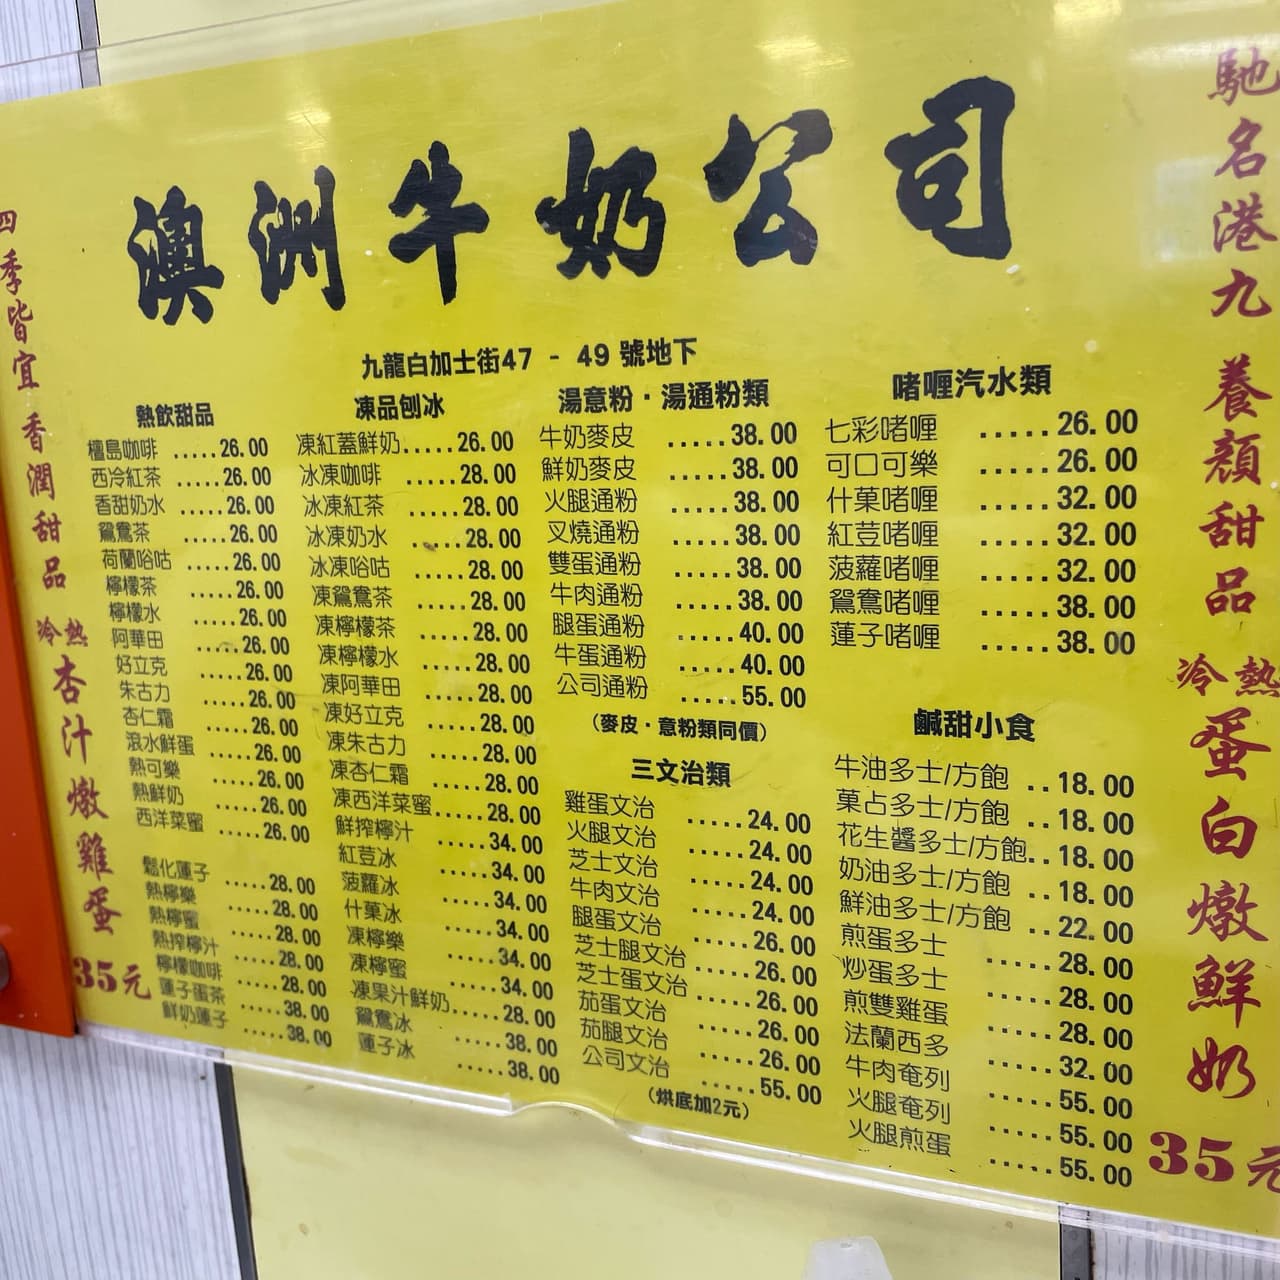 澳洲牛奶公司
九龍白加士街47 - 49 號地下
四季皆宜 香潤甜品
冷熱
杏汁燉雞蛋
35元
熱飲甜品
檀島咖啡 .....26.00
西冷紅茶 .....26.00
香甜奶水 .....26.00
鴛鴦茶 .....26.00
荷蘭唂咕 .....26.00
檸檬茶 .....26.00
檸檬水 .....26.00
阿華田 .....26.00
好立克 .....26.00
朱古力 .....26.00
杏仁霜 .....26.00
滾水鮮蛋 .....26.00
熱可樂 .....26.00
熱鮮奶 .....26.00
西洋菜蜜 .....26.00
鬆化蓮子 .....28.00
熱檸樂 .....28.00
熱檸蜜 .....28.00
熱搾檸汁 .....28.00
檸檬咖啡 .....28.00
蓮子蛋茶 .....38.00
鮮奶蓮子 .....38.00
凍品刨冰
凍紅蓋鮮奶.....26.00
冰凍咖啡 .....28.00
冰凍紅茶 .....28.00
冰凍奶水 .....28.00
冰凍唂咕 .....28.00
凍鴛鴦茶 .....28.00
凍檸檬茶 .....28.00
凍檸檬水 .....28.00
凍阿華田 .....28.00
凍好立克 .....28.00
凍朱古力 .....28.00
凍杏仁霜 .....28.00
凍西洋菜蜜.....28.00
鮮搾檸汁 .....34.00
紅荳冰 .....34.00
菠蘿冰 .....34.00
什菓冰 .....34.00
凍檸樂 .....34.00
凍檸蜜 .....34.00
凍果汁鮮奶.....28.00
鴛鴦冰 .....38.00
蓮子冰 .....38.00
湯意粉·湯通粉類
牛奶麥皮 .....38.00
鮮奶麥皮 .....38.00
火腿通粉 .....38.00
叉燒通粉 .....38.00
雙蛋通粉 .....38.00
牛肉通粉 .....38.00
腿蛋通粉 .....40.00
牛蛋通粉 .....40.00
公司通粉 .....55.00
(麥皮·意粉類同價)
三文治類
雞蛋文治 .....24.00
火腿文治 .....24.00
芝士文治 .....24.00
牛肉文治 .....24.00
腿蛋文治 .....26.00
芝士腿文治 .....26.00
芝士蛋文治 .....26.00
茄蛋文治 .....26.00
茄腿文治 .....26.00
公司文治 .....55.00
(烘底加2元)
啫喱汽水類
七彩啫喱 .....26.00
可口可樂 .....26.00
什菓啫喱 .....32.00
紅荳啫喱 .....32.00
菠蘿啫喱 .....32.00
鴛鴦啫喱 .....38.00
蓮子啫喱 .....38.00
鹹甜小食
牛油多士/方飽 ..18.00
菓占多士/方飽 ..18.00
花生醬多士/方飽..18.00
奶油多士/方飽 ..18.00
鮮油多士/方飽 ..22.00
煎蛋多士 .....28.00
炒蛋多士 .....28.00
煎雙雞蛋 .....28.00
法蘭西多 .....32.00
牛肉奄列 .....55.00
火腿奄列 .....55.00
火腿煎蛋 .....55.00
馳名港九 養顏甜品
冷熱
蛋白燉鮮奶
35元